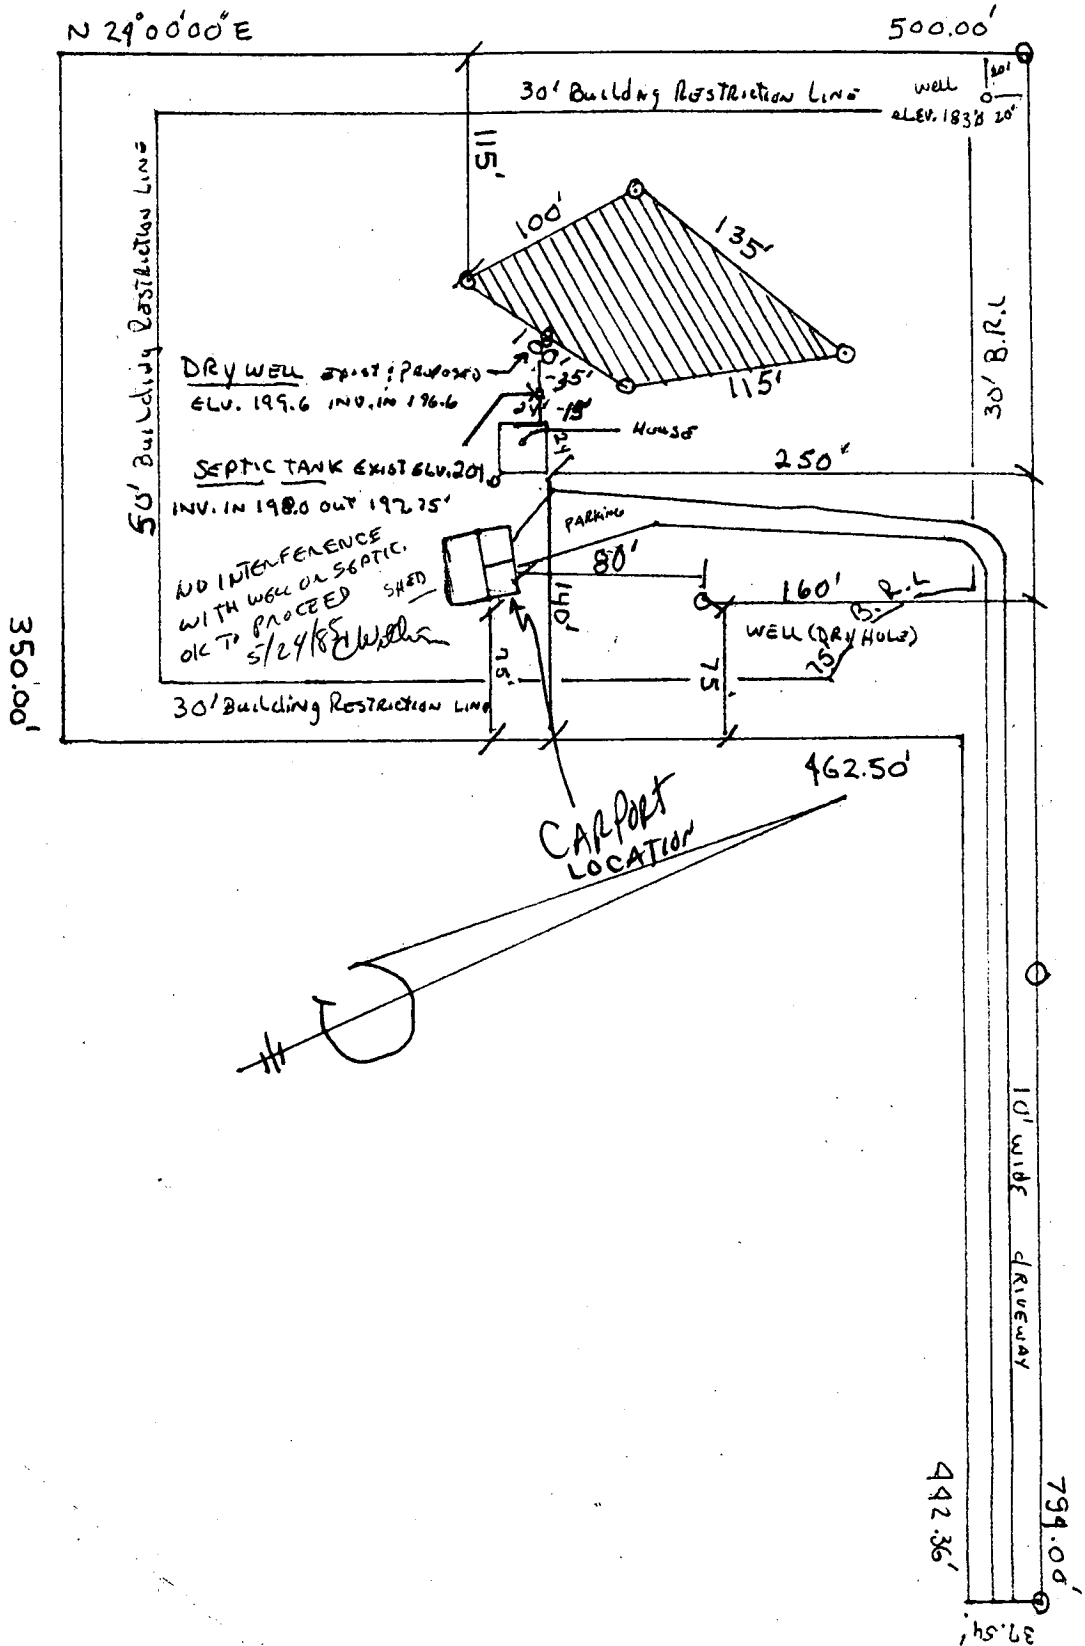 N 29°00'00" E
500.00'
30' Building RESTRICTION LINE
well
20'
ELEV. 183.8 20'
115'
50' Building RESTRICTION LINE
100'
135'
115'
30' B.R.L
DRY WELL EXIST & PROPOSED
ELV. 199.6 INV. IN 196.6
-35'
24' -15'
HOUSE
24'
SEPTIC TANK EXIST ELV. 201
INV. IN 198.0 OUT 197.75'
250'
PARKING
80'
NO INTERFERENCE
WITH WELL OR SEPTIC.
OK TO PROCEED
5/24/85
SHED
140'
160'
WELL (DRY HOLE)
75' B.R.L
75'
75'
30' Building RESTRICTION LINE
350.00'
462.50'
CARPORT
LOCATION
10' WIDE DRIVEWAY
442.36'
794.00'
37.54'